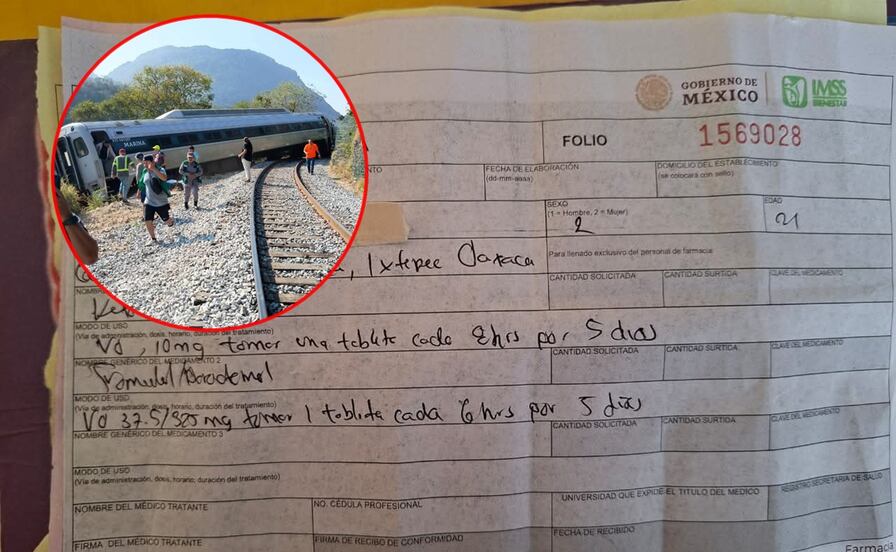 MARINA
GOBIERNO DE MÉXICO
IMSS BIENESTAR
FOLIO 1569028
FECHA DE ELABORACIÓN (dd-mm-aaaa)
DOMICILIO DEL ESTABLECIMIENTO (se colocará con sello)
SEXO (1 = Hombre, 2 = Mujer) 2
EDAD 21
, Ixtepec Oaxaca
Para llenado exclusivo del personal de farmacia
CANTIDAD SOLICITADA CANTIDAD SURTIDA CLAVE DEL MEDICAMENTO
MODO DE USO
(Vía de administración, dosis, horario, duración del tratamiento)
VO, 10mg tomar una tableta cada 8hrs por 5 dias
NOMBRE GENÉRICO DEL MEDICAMENTO 2
CANTIDAD SOLICITADA CANTIDAD SURTIDA CLAVE DEL MEDICAMENTO
MODO DE USO
(Vía de administración, dosis, horario, duración del tratamiento)
VO 37.5/325 mg tomar 1 tableta cada 6 hrs por 5 dias
NOMBRE GENÉRICO DEL MEDICAMENTO 3
CANTIDAD SOLICITADA CANTIDAD SURTIDA CLAVE DEL MEDICAMENTO
MODO DE USO
(Vía de administración, dosis, horario, duración del tratamiento)
NOMBRE DEL MÉDICO TRATANTE
NO. CÉDULA PROFESIONAL
UNIVERSIDAD QUE EXPIDE EL TITULO DEL MEDICO
REGISTRO SECRETARIA DE SALUD
FIRMA DEL MÉDICO TRATANTE
FIRMA DE RECIBO DE CONFORMIDAD
FECHA DE RECIBIDO
Farmacia